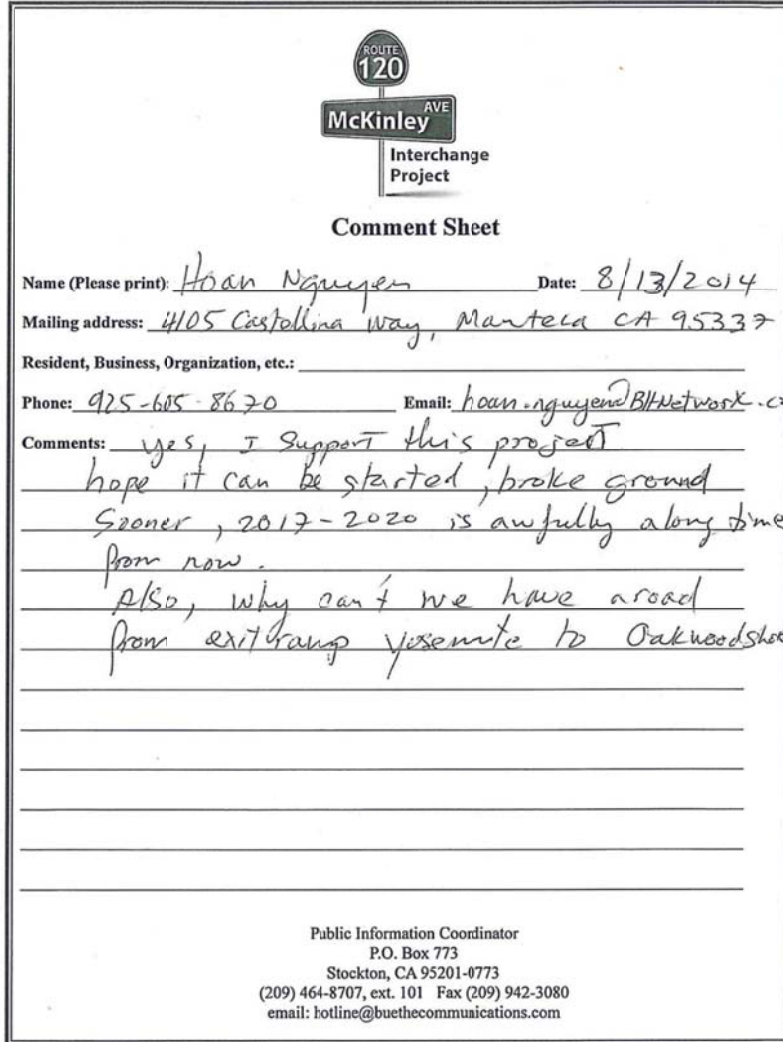 ROUTE
120
McKinley AVE
Interchange
Project
Comment Sheet
Name (Please print): Hoan Nguyen Date: 8/13/2014
Mailing address: 4105 Castellina Way, Manteca CA 95337
Resident, Business, Organization, etc.:
Phone: 925-605-8670 Email: hoan.nguyen@BHNetwork.c
Comments: yes, I Support this project
hope it can be started, broke ground
Sooner, 2017-2020 is awfully along time
from now.
Also, why can't we have a road
from exit ramp Yosemite to Oakwoodsho
Public Information Coordinator
P.O. Box 773
Stockton, CA 95201-0773
(209) 464-8707, ext. 101 Fax (209) 942-3080
email: hotline@buethecommunications.com